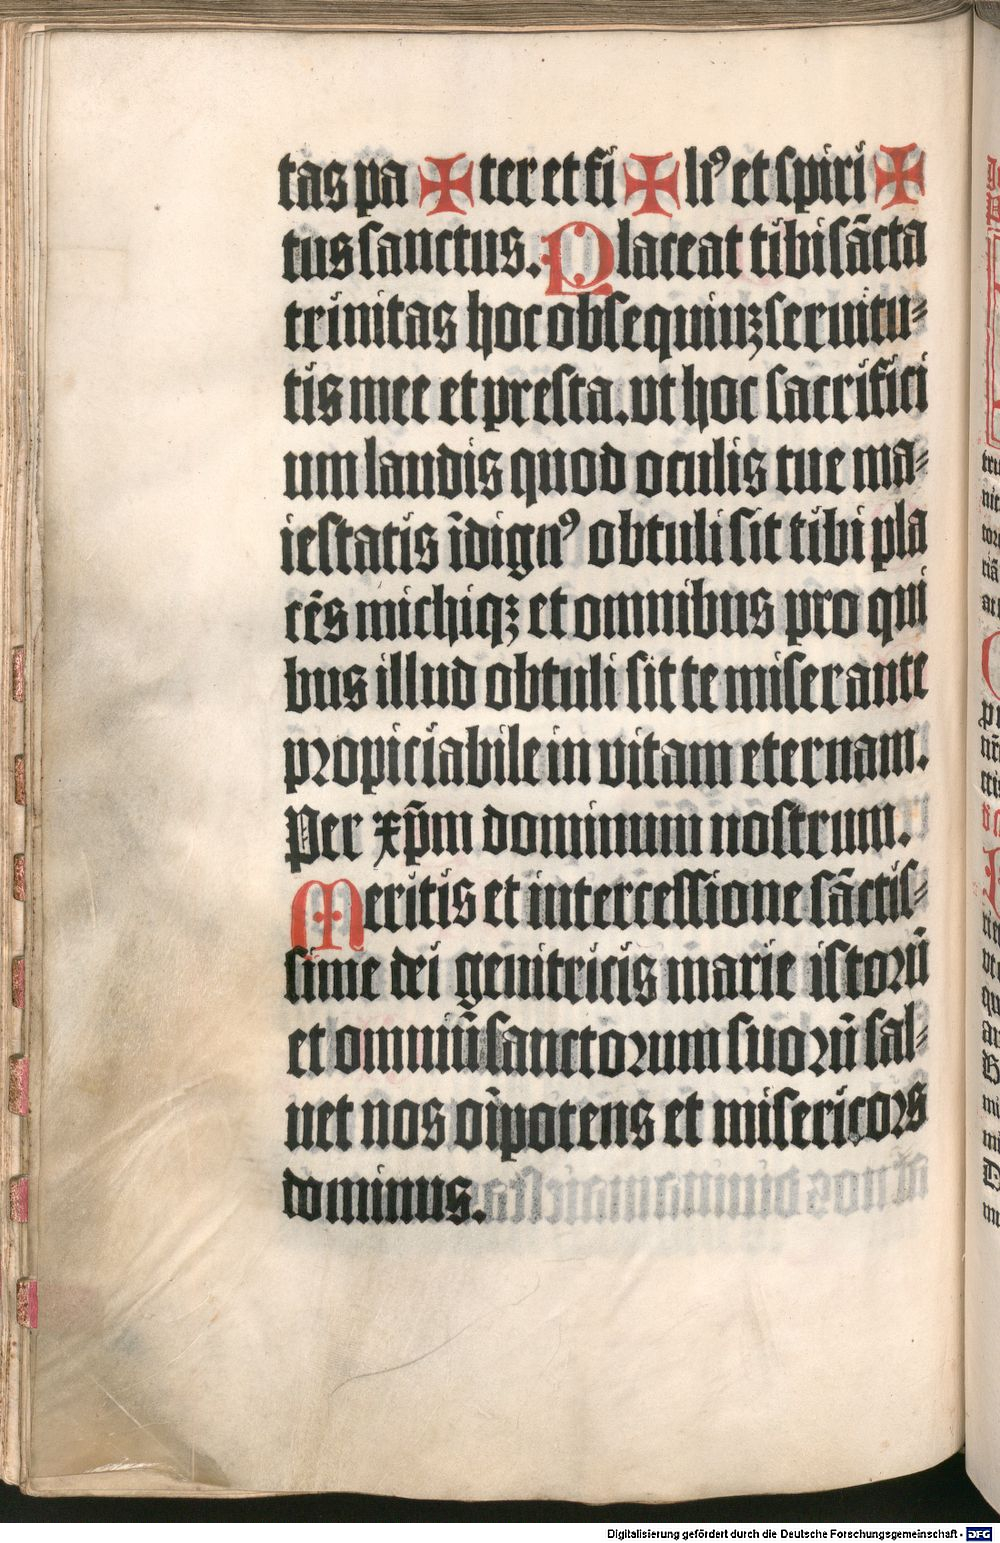 tas pa ✠ ter et fi ✠ liꝰ et spiri ✠
tus sanctus. Placeat tibi sācta
trinitas hoc obsequiuꝫ seruitu⸗
tis mee et presta. vt hoc sacrifici
um laudis quod oculis tue ma⸗
iestatis īdignꝰ obtuli sit tibi pla
cēs michiqꝫ et omnibus pro qui
bus illud obtuli sit te miserante
propiciabile in vitam eternam.
Per xp̄m dominum nostrum.
Meritis et intercessione sāctis⸗
sime dei genitricis marie istorū
et omniū sanctorum suorū sal⸗
uet nos oīpotens et misericors
dominus.
Digitalisierung gefördert durch die Deutsche Forschungsgemeinschaft - DFG